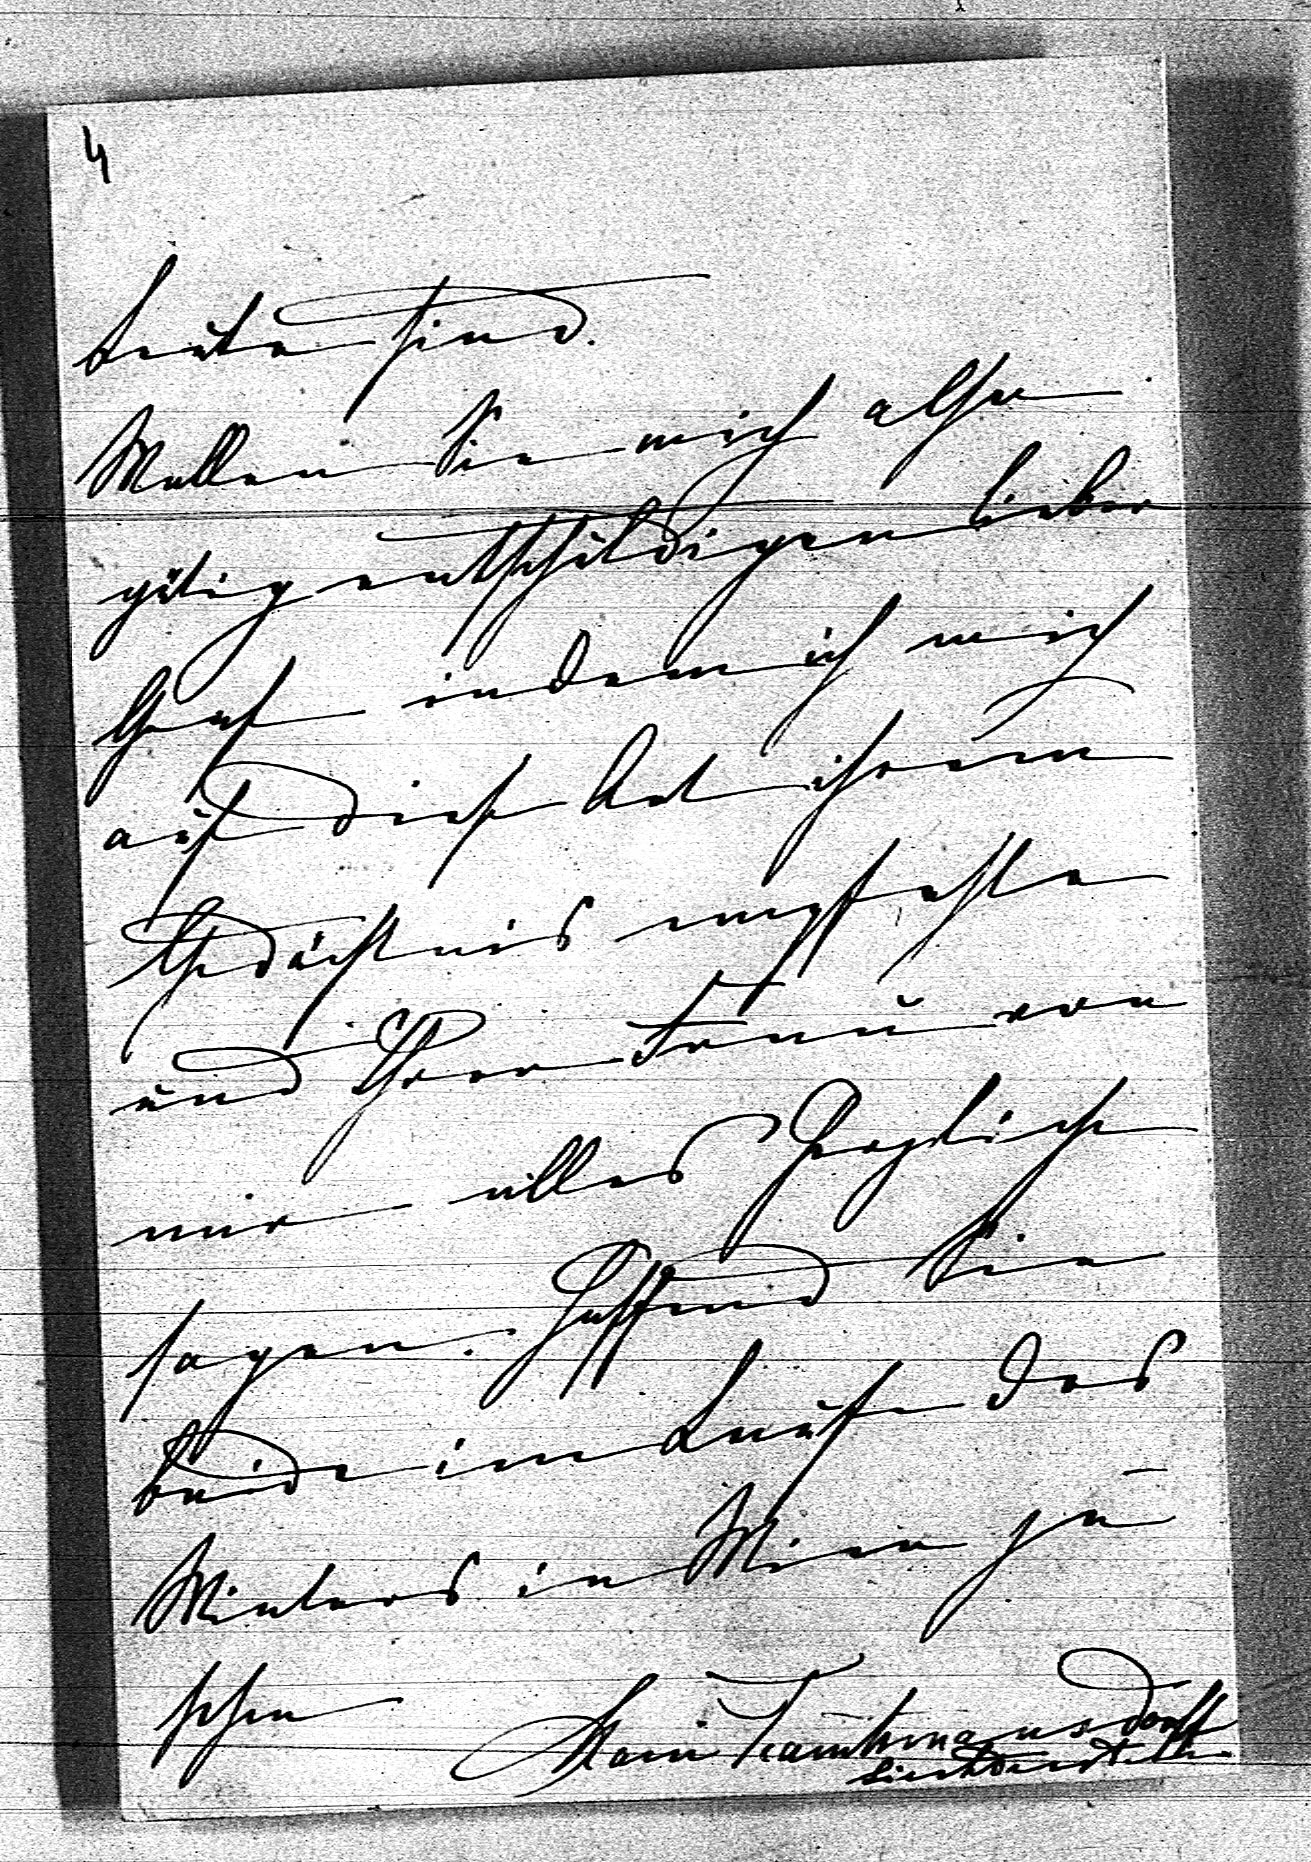 4
Leute sind.
Wollen Sie mich also
gütig entschuldigen lieber
Graf indem ich mich
auf diese Art ihrem
Gedächtnis empfehle
und Ihrer Frau von
mir alles Herzliche
sagen. Hoffend Sie
beide im Laufe des
Winters in Wien zu
sehen
Trauttmansdorff
Liechtenstein